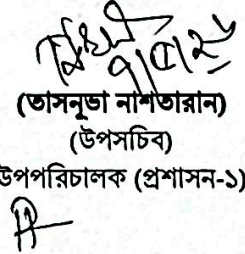 (তাসনুভা নাশতারান)
(উপসচিব)
উপপরিচালক (প্রশাসন-১)